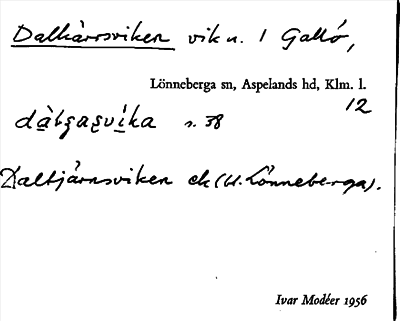 Dalkärrsviken vik n. i Gallö,
Lönneberga sn, Aspelands hd, Klm. l.
12
s. 38
Daltjärnsviken ek (St. Lönneberga).
Ivar Modéer 1956